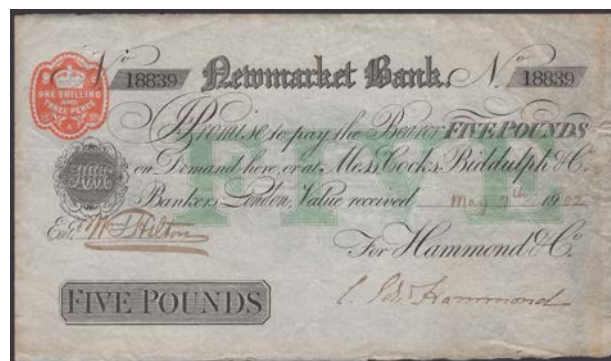 No 18839 Newmarket Bank. No 18839
ONE SHILLING
AND
THREE PENCE
I Promise to pay the Bearer FIVE POUNDS
on Demand here, or at Mess Cocks Biddulph & Co.
Bankers London, Value received May 7th 1902
FIVE
Entd. Wm Hilton
For Hammond & Co.
FIVE POUNDS
Hammond